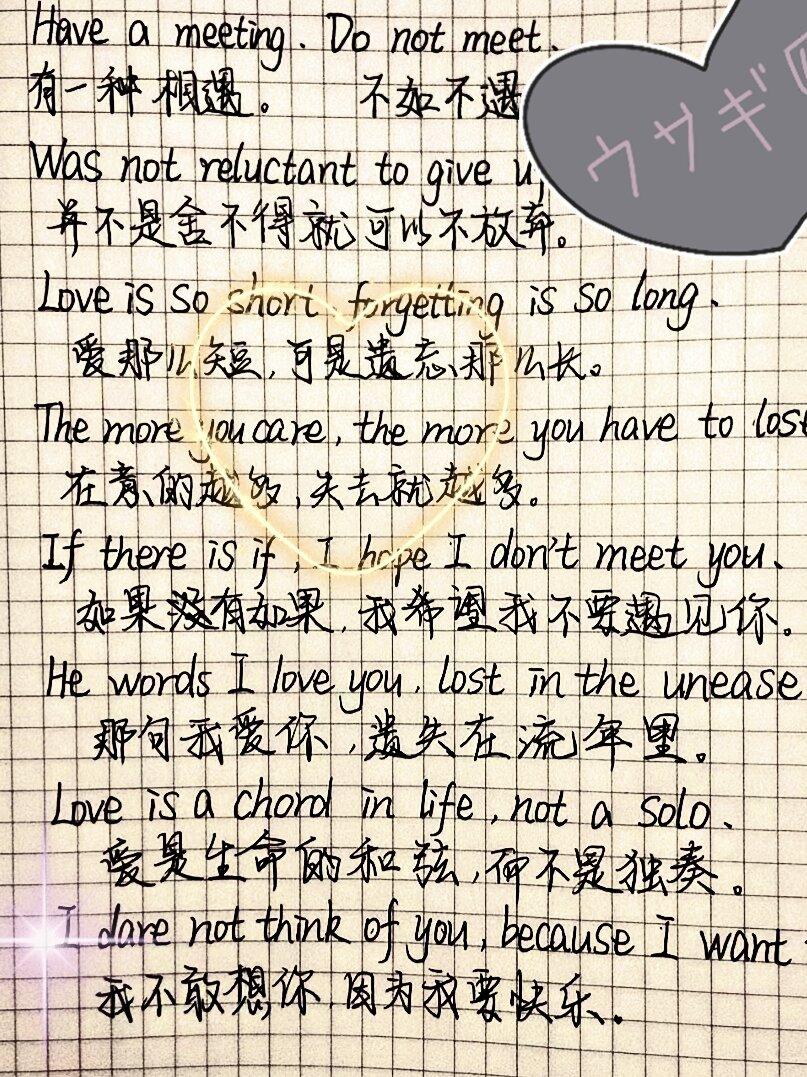 Have a meeting. Do not meet.
有一种相遇。 不如不遇
ウサギ
Was not reluctant to give u
并不是舍不得就可以不放弃。
Love is so short, forgetting is so long.
爱那么短,可是遗忘那么长。
The more you care, the more you have to lost
在意的越多,失去就越多。
If there is if, I hope I don't meet you.
如果没有如果,我希望我不要遇见你。
He words I love you, lost in the unease
那句我爱你,遗失在流年里。
Love is a chord in life, not a solo.
爱是生命的和弦,而不是独奏。
I dare not think of you, because I want
我不敢想你,因为我要快乐。